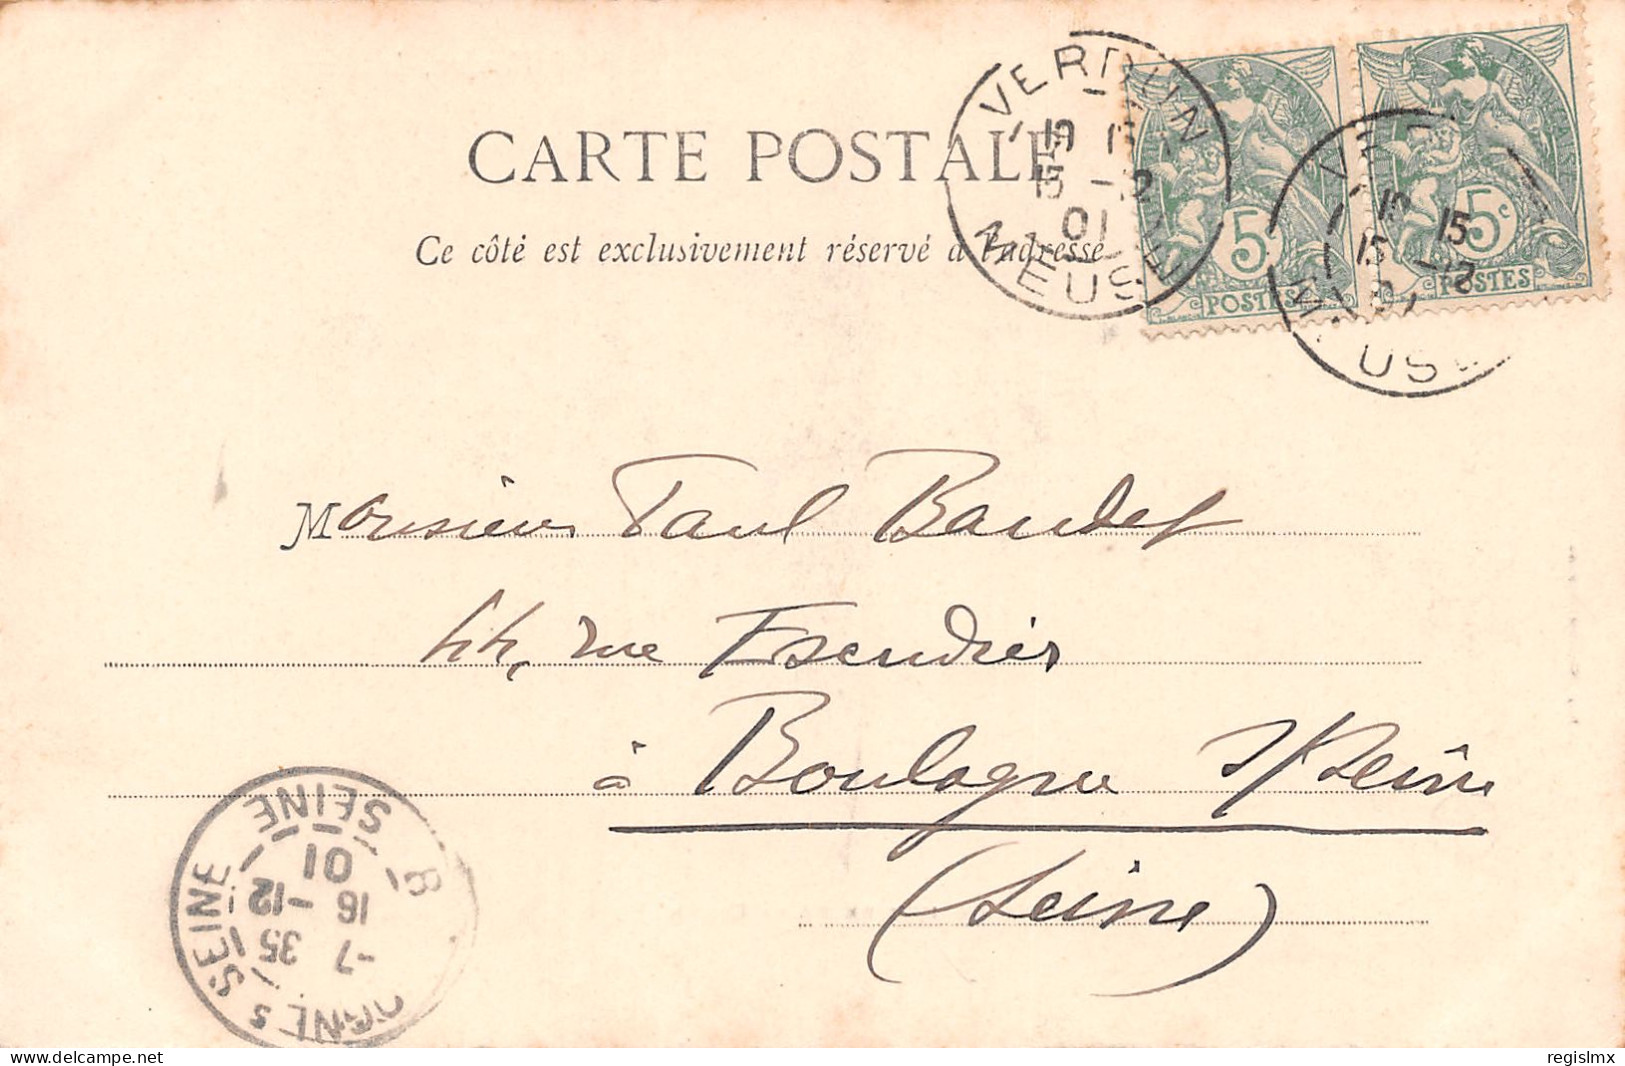 CARTE POSTALE
Ce côté est exclusivement réservé à l'adresse
VERDUN
15 -12
01
MEUSE
5c
POSTES
5c
POSTES
15 15
15 -12
01
MEUSE
Monsieur Paul Baudet
44, rue Escudier
à Boulogne s/Seine
(Seine)
B OGNE S SEINE
-7 35
16 -12
01
SEINE
www.delcampe.net
regislmx